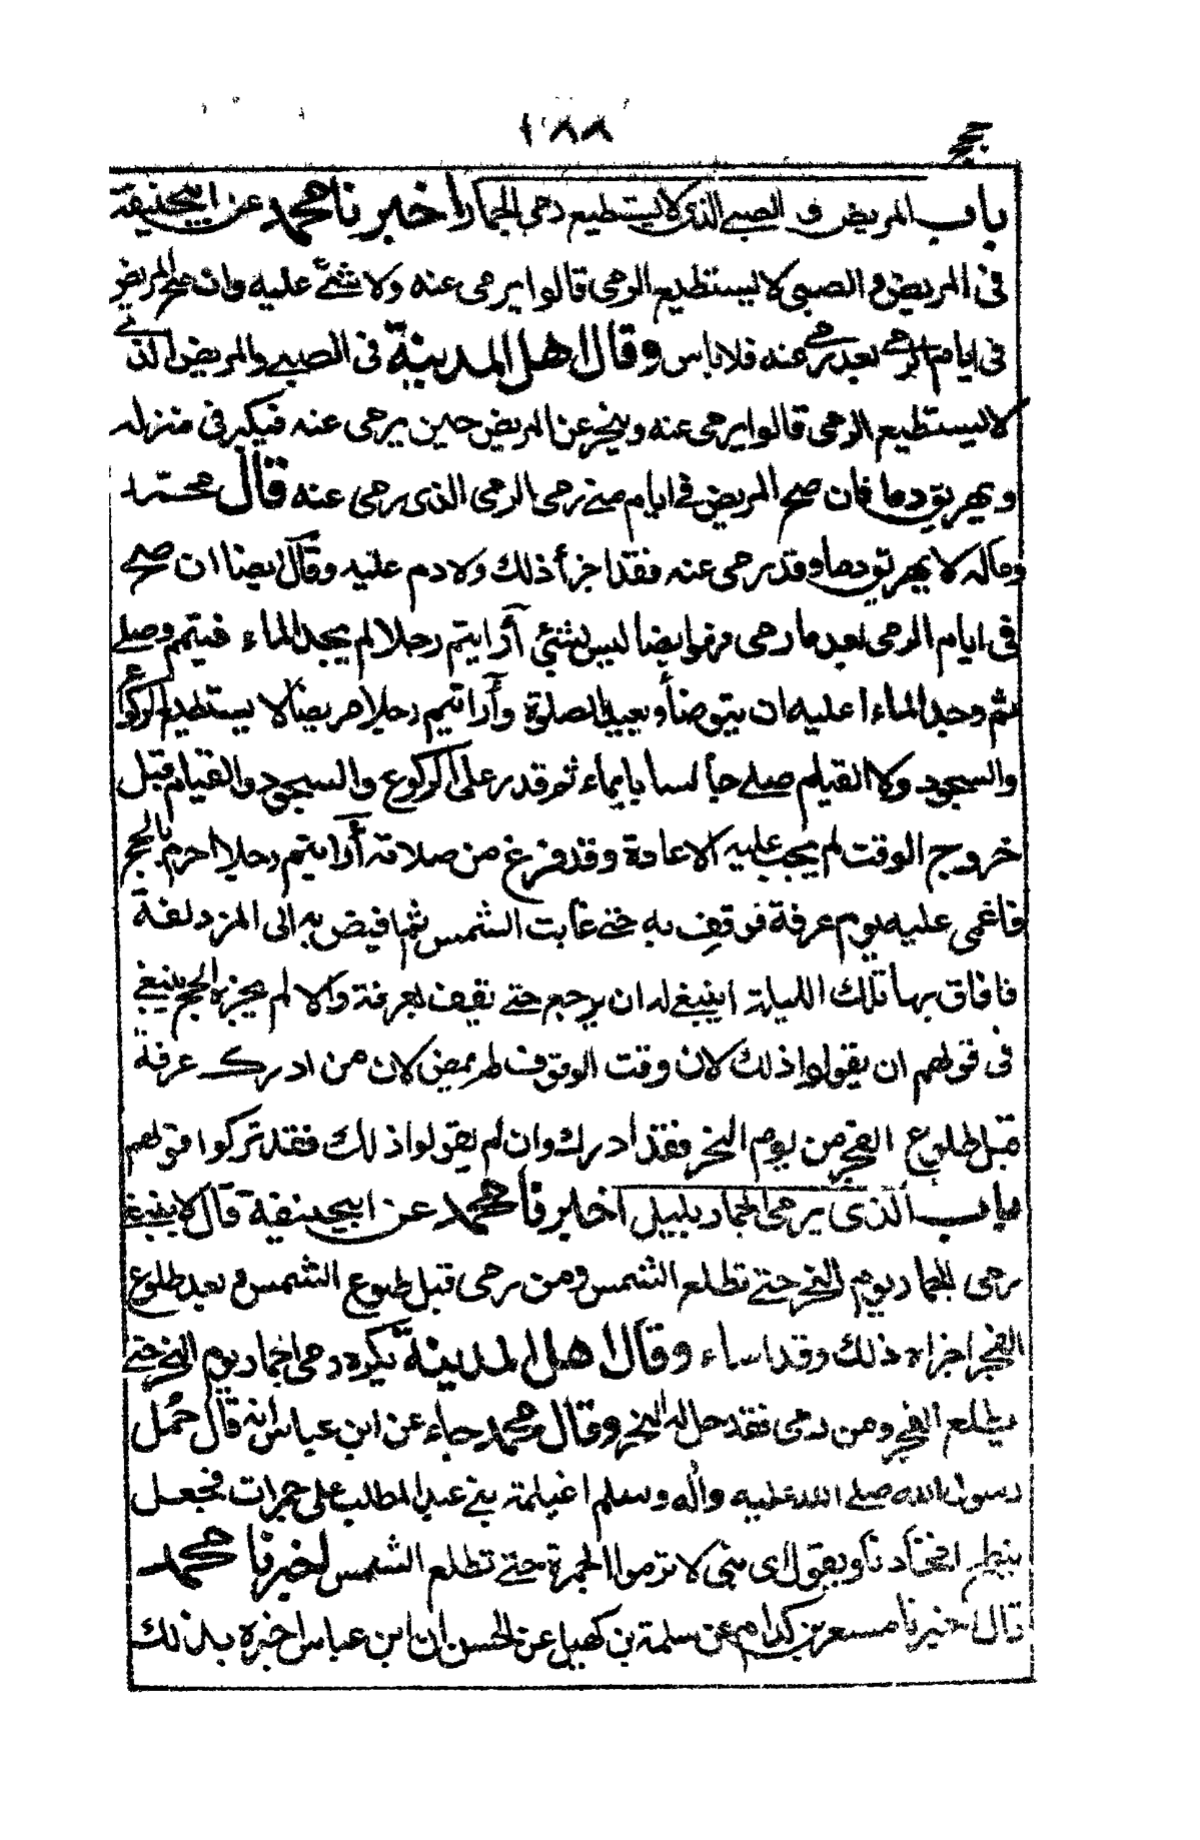 ١٨٨
حج
باب المريض و الصبي الذي لا يستطيع رمي الجمار اخبرنا محمد عن ابيحنيفة
في المريض و الصبي لا يستطيع الرمي قالوا يرمى عنه ولا شئ عليه وان صح المريض
في ايام الرمي بعد رمي عنه فلا باس وقال اهل المدينة في الصبي والمريض الذي
لا يستطيع الرمي قالوا يرمى عنه ويتحر عن المريض حين يرمى عنه فيكبر في منزله
ويهريق دما فان صح المريض في ايام منى رمى الرمي الذي رمى عنه قال محمد
وماله لا يهريق دما وقد رمى عنه فقد اجزأ ذلك ولا دم عليه وقال ايضا ان صح
في ايام الرمي بعد ما رمى رمى ايضا ليس بشئ أرايتم رجلا لم يجد الماء فيتمم وصلى
ثم وجد الماء اعليه ان يتوضأ ويعيد الصلوة وأرايتم رجلا مريضا لا يستطيع الركوع
والسجود ولا القيام صلى جالسا بايماء ثم قدر على الركوع والسجود والقيام قبل
خروج الوقت لم يجب عليه الاعادة وقد فرغ من صلاته أرايتم رجلا احرم بالحج
فاغمى عليه يوم عرفة فوقف به حتى غابت الشمس ثم افيض به الى المزدلفة
فافاق بها تلك الليلة اينبغى له ان يرجع حتى يقف بعرفة والا لم يجزه الحج ينبغي
في قولهم ان يقولوا ذلك لان وقت الوقوف لم يمض لان من ادرك عرفة
قبل طلوع الفجر من يوم النحر فقد ادرك وان لم يقولوا ذلك فقد تركوا قولهم
باب الذي يرمى الجمار بليل اخبرنا محمد عن ابيحنيفة قال لا ينبغي
رمى الجمار يوم النحر حتى تطلع الشمس ومن رمى قبل طلوع الشمس و بعد طلوع
الفجر اجزاه ذلك وقد اساء وقال اهل المدينة يكره رمي الجمار يوم النحر حتى
يطلع الفجر ومن رمى فقد حل له النحر وقال محمد جاء عن ابن عباس انه قال حمل
رسول الله صلى الله عليه واله وسلم اغيلمة بني عبد المطلب على حمرات فجعل
يلطح افخاذنا ويقول اي بني لا ترموا الجمرة حتى تطلع الشمس اخبرنا محمد
قال اخبرنا مسعر بن كدام عن سلمة بن كهيل عن الحسن ان ابن عباس اخبره بذلك